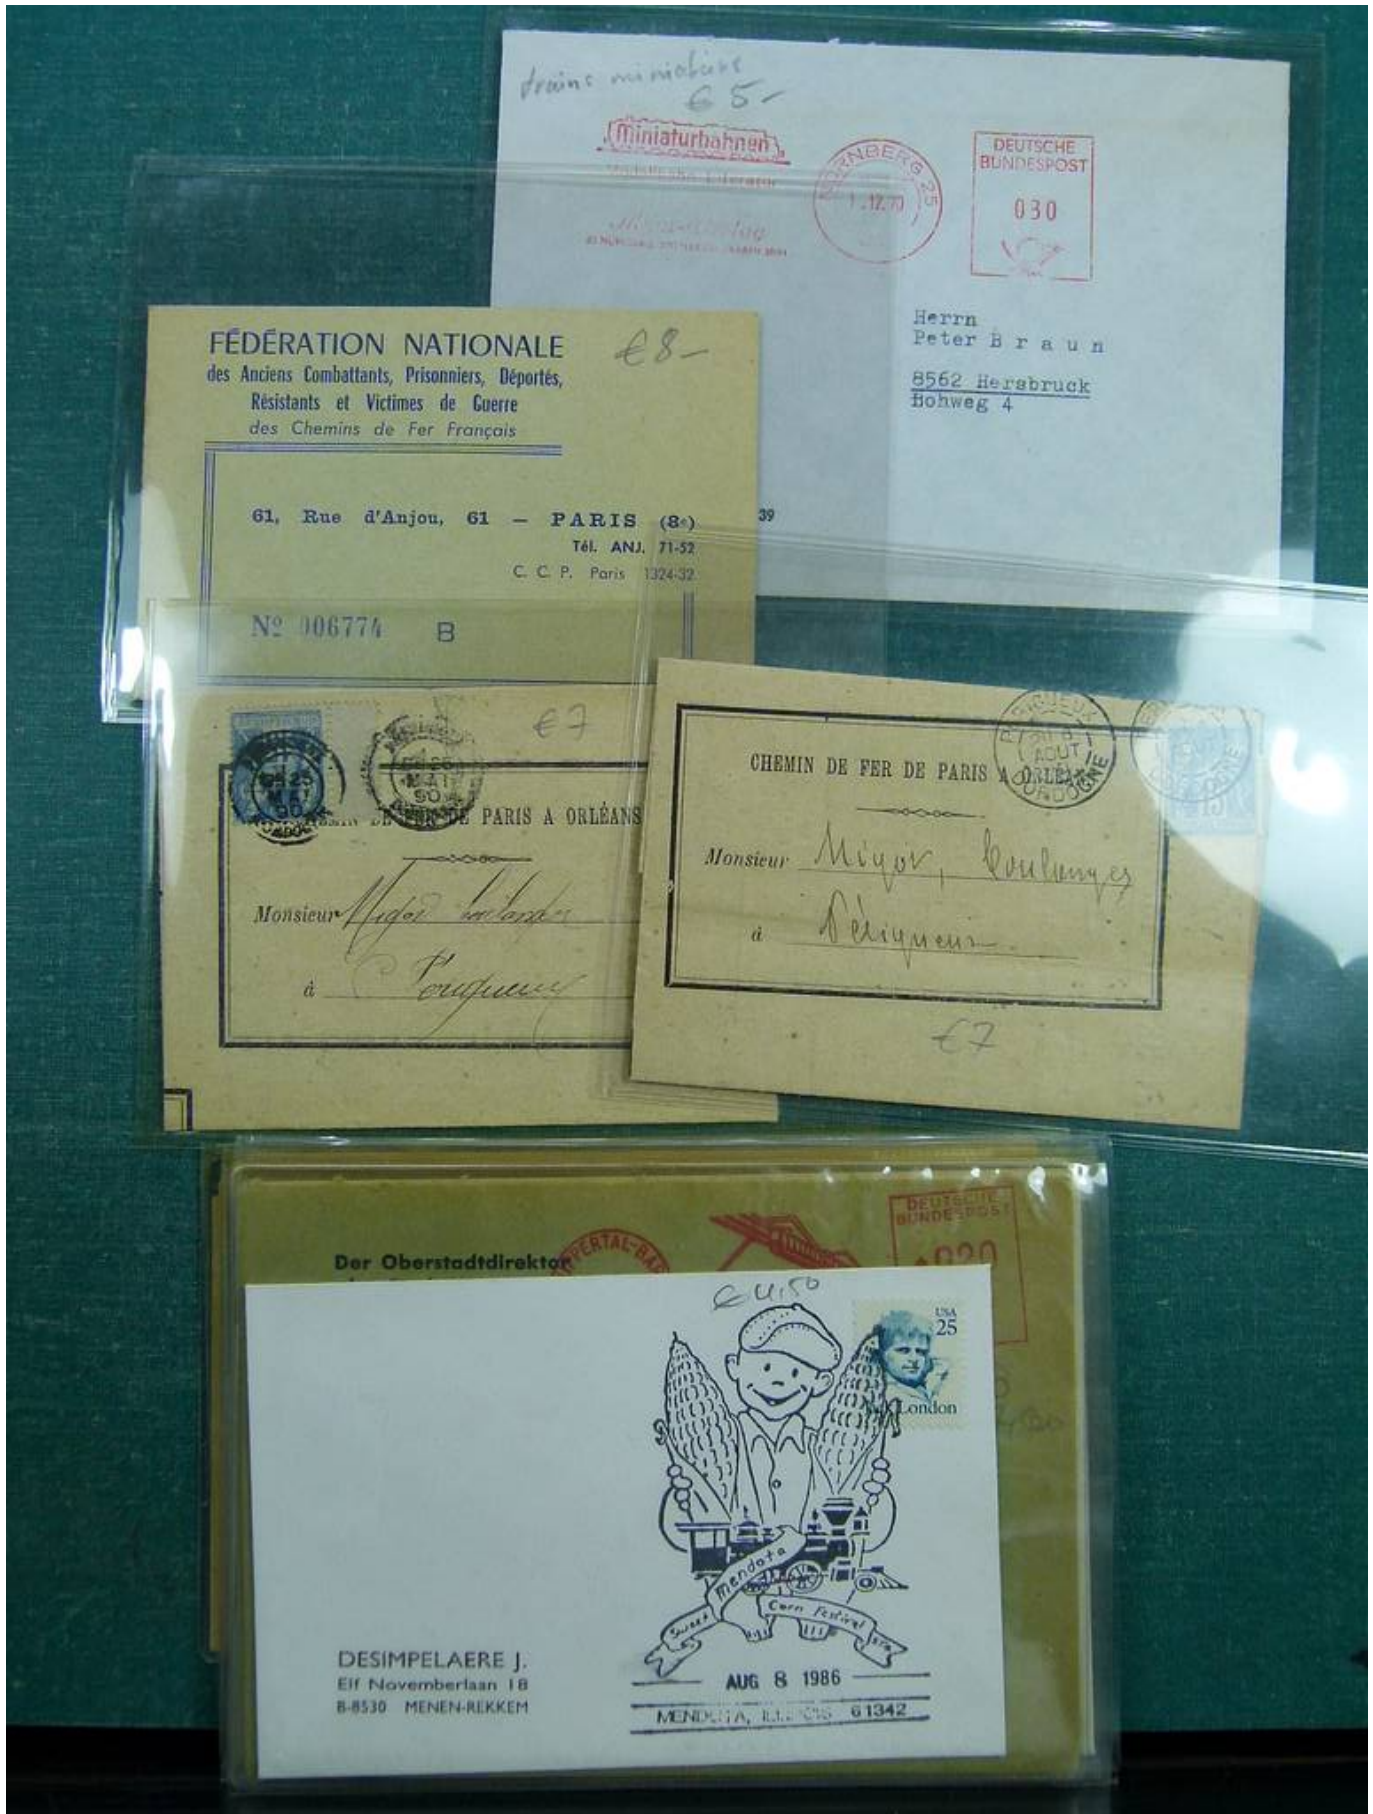 trains miniature
€ 5-
Miniaturbahnen
NÜRNBERG 25
1.12.70
DEUTSCHE
BUNDESPOST
030
Herrn
Peter Braun
8562 Hersbruck
Bohweg 4
39
FÉDÉRATION NATIONALE
des Anciens Combattants, Prisonniers, Déportés,
Résistants et Victimes de Guerre
des Chemins de Fer Français
€8-
61, Rue d'Anjou, 61 — PARIS (8e)
Tél. ANJ. 71-52
C. C. P. Paris 1324-32
No 006774 B
€7
25
MAI
90
DE FER DE PARIS A ORLÉANS
Monsieur
à
PERIGUEUX
AOUT
DORDOGNE
15
CHEMIN DE FER DE PARIS A ORLÉANS
Monsieur Migot, Coulanges
à Périgueux
€7
Der Oberstadtdirektor
WUPPERTAL-BAR
DEUTSCHE
BUNDESPOST
020
€ 4,50
USA
25
Jack London
Mendota
Sweet Corn Festival
AUG 8 1986
MENDOTA, ILLINOIS 61342
DESIMPELAERE J.
Elf Novemberlaan 18
B-8530 MENEN-REKKEM